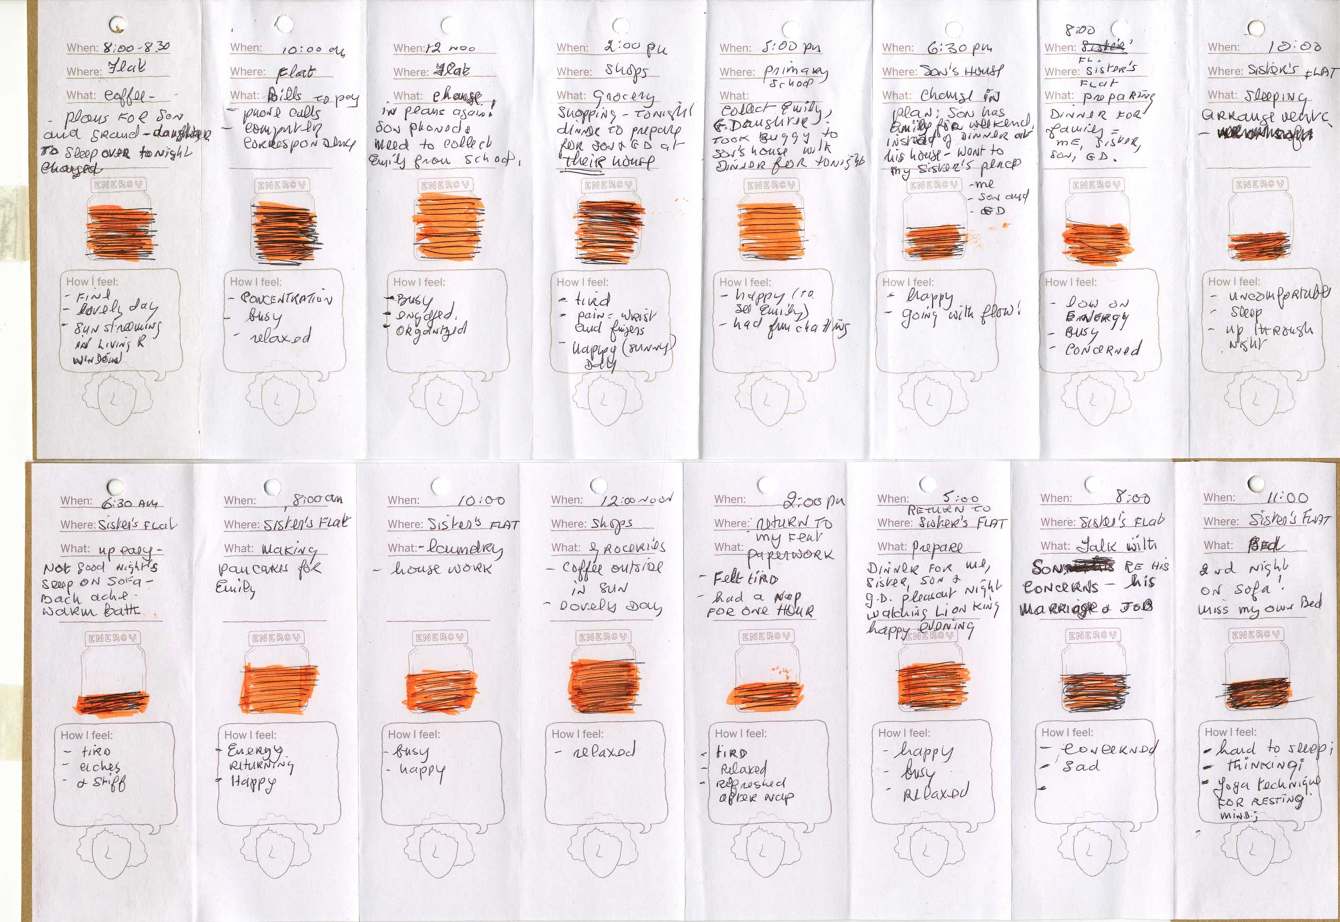 When: 8:00-8:30
Where: Flat
What: Coffee -
- plans FOR SON
and GRAND-daughter
TO Sleep over tonight
Changed
ENERGY
How I feel:
- FINE
- lovely day
- SUN STREAMING
IN LIVING R
WINDOW.
When: 10:00 am
Where: Flat
What: Bills to pay
- phone calls
- computer
correspondency
ENERGY
How I feel:
- CONCENTRATION
- busy
- relaxed
When: 12 noo
Where: Flat
What: Change,
in plans again!
SON phoned.
Need to collect
Emily from school,
ENERGY
How I feel:
- Busy
- Engaged,
- Organized
When: 2:00 pm
Where: Shops
What: Grocery
Shopping - tonight
dinner to prepare
for son & GD at
their house
ENERGY
How I feel:
- tird
- pain = wrist
and figers
- Happy (sunny)
Day
When: 5:00 pm
Where: primary
school
What:
collect Emily,
G. Daughter!
Took Buggy to
Son's house with
Dinner for tonight
ENERGY
How I feel:
- happy (to
see Emily)
- had fun chatting
When: 6:30 pm
Where: Son's House
What: Change in
plan; Son has
Emily for weekend,
instead of dinner at
his house - went to
my sister's place
- me
- son and
- GD
ENERGY
How I feel:
- happy
- going with flow!
8:00
When: Sister'
FL.
Where: Sister's
FLAT
What: preparing
Dinner for
family =
me, sister,
son, GD.
ENERGY
How I feel:
- low on
ENERGY
- Busy
- Concerned
When: 10:00
Where: Sister's FLAT
What: Sleeping
ENERGY
How I feel:
- uncomfortable
sleep
- up through
night
When: 6:30 AM
Where: Sister's Flat
What: up early -
Not good night's
sleep on sofa -
Back ache -
warm bath.
ENERGY
How I feel:
- tird
- aches
- & stiff
When: 8:00 am
Where: Sister's Flat
What: Making
pancakes for
Emily
ENERGY
How I feel:
- Energy
RETURNING
- Happy
When: 10:00
Where: Sister's FLAT
What: - laundry
- house work
ENERGY
How I feel:
- busy
- happy
When: 12:00 NOON
Where: Shops
What: Groceries
- Coffee outside
in sun
- Lovely Day
ENERGY
How I feel:
- relaxed
When: 2:00 pm
Where: RETURN TO
my flat
What: paperwork
- Felt tird
- had a nap
FOR ONE HOUR
ENERGY
How I feel:
- tird
- Relaxed
- Refreshed
after nap
When: 5:00
RETURN TO
Where: Sister's FLAT
What: Prepare
Dinner for me,
sister, son &
g.d. pleasant night
watching Lion King
happy evening
ENERGY
How I feel:
- happy
- busy
- Relaxed
When: 8:00
Where: Sister's Flat
What: Talk with
Son RE HIS
CONCERNS - his
MARRIAGE & JOB
ENERGY
How I feel:
- Concerned
- Sad
-
When: 11:00
Where: Sister's FLAT
What: Bed
2nd night
on sofa!
miss my own Bed
ENERGY
How I feel:
- hard to sleep;
- thinking;
- Yoga technique
FOR RESTING
mind;